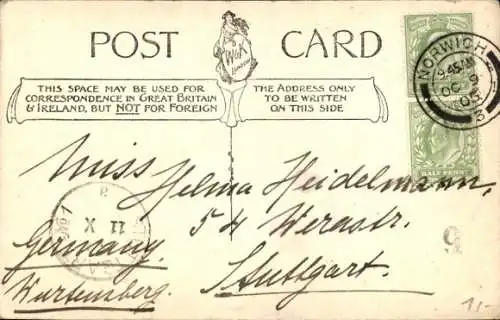 POST CARD
W&K
LONDON
THIS SPACE MAY BE USED FOR
CORRESPONDENCE IN GREAT BRITAIN
& IRELAND, BUT NOT FOR FOREIGN
THE ADDRESS ONLY
TO BE WRITTEN
ON THIS SIDE
NORWICH
9.45AM
OC 9
05
3
HALF PENNY
Miss Helma Heidelmann,
54 Werastr.
Germany. Stuttgart.
Wurtemberg.
11 X